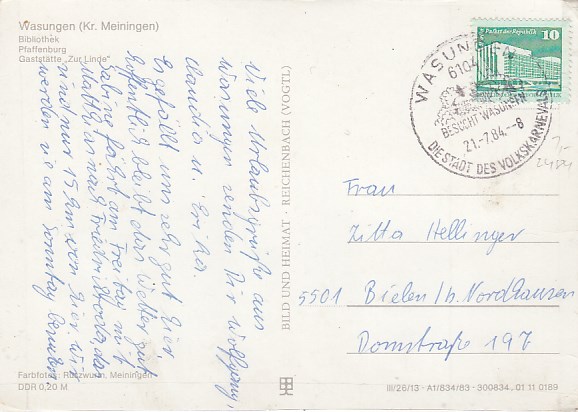 Wasungen (Kr. Meiningen)
Bibliothek
Pfaffenburg
Gaststätte „Zur Linde“
Viele Urlaubsgrüße aus
Wasungen senden Dir Wolfgang,
Claudia u. Erika.
Es gefällt uns sehr gut hier,
hoffentlich bleibt das Wetter gut
Sabine fährt am Freitag mit
Matthias nach Friedrichroda, das
sind nur 15 km von hier wir
werden sie am Sonntag besuchen
Farbfotos: Rützwurm, Meiningen
DDR 0,20 M
BILD UND HEIMAT · REICHENBACH (VOGTL)
WASUNGEN
6104
BESUCHT WASUNGEN
21.-7.84.--8
DIE STADT DES VOLKSKARNEVALS
Palast der Republik
10
Frau
Zitta Hellinger
5501 Bielen/b. Nordhausen
Domstraße 197
III/26/13 · A1/834/83 · 300834 01 11 0189